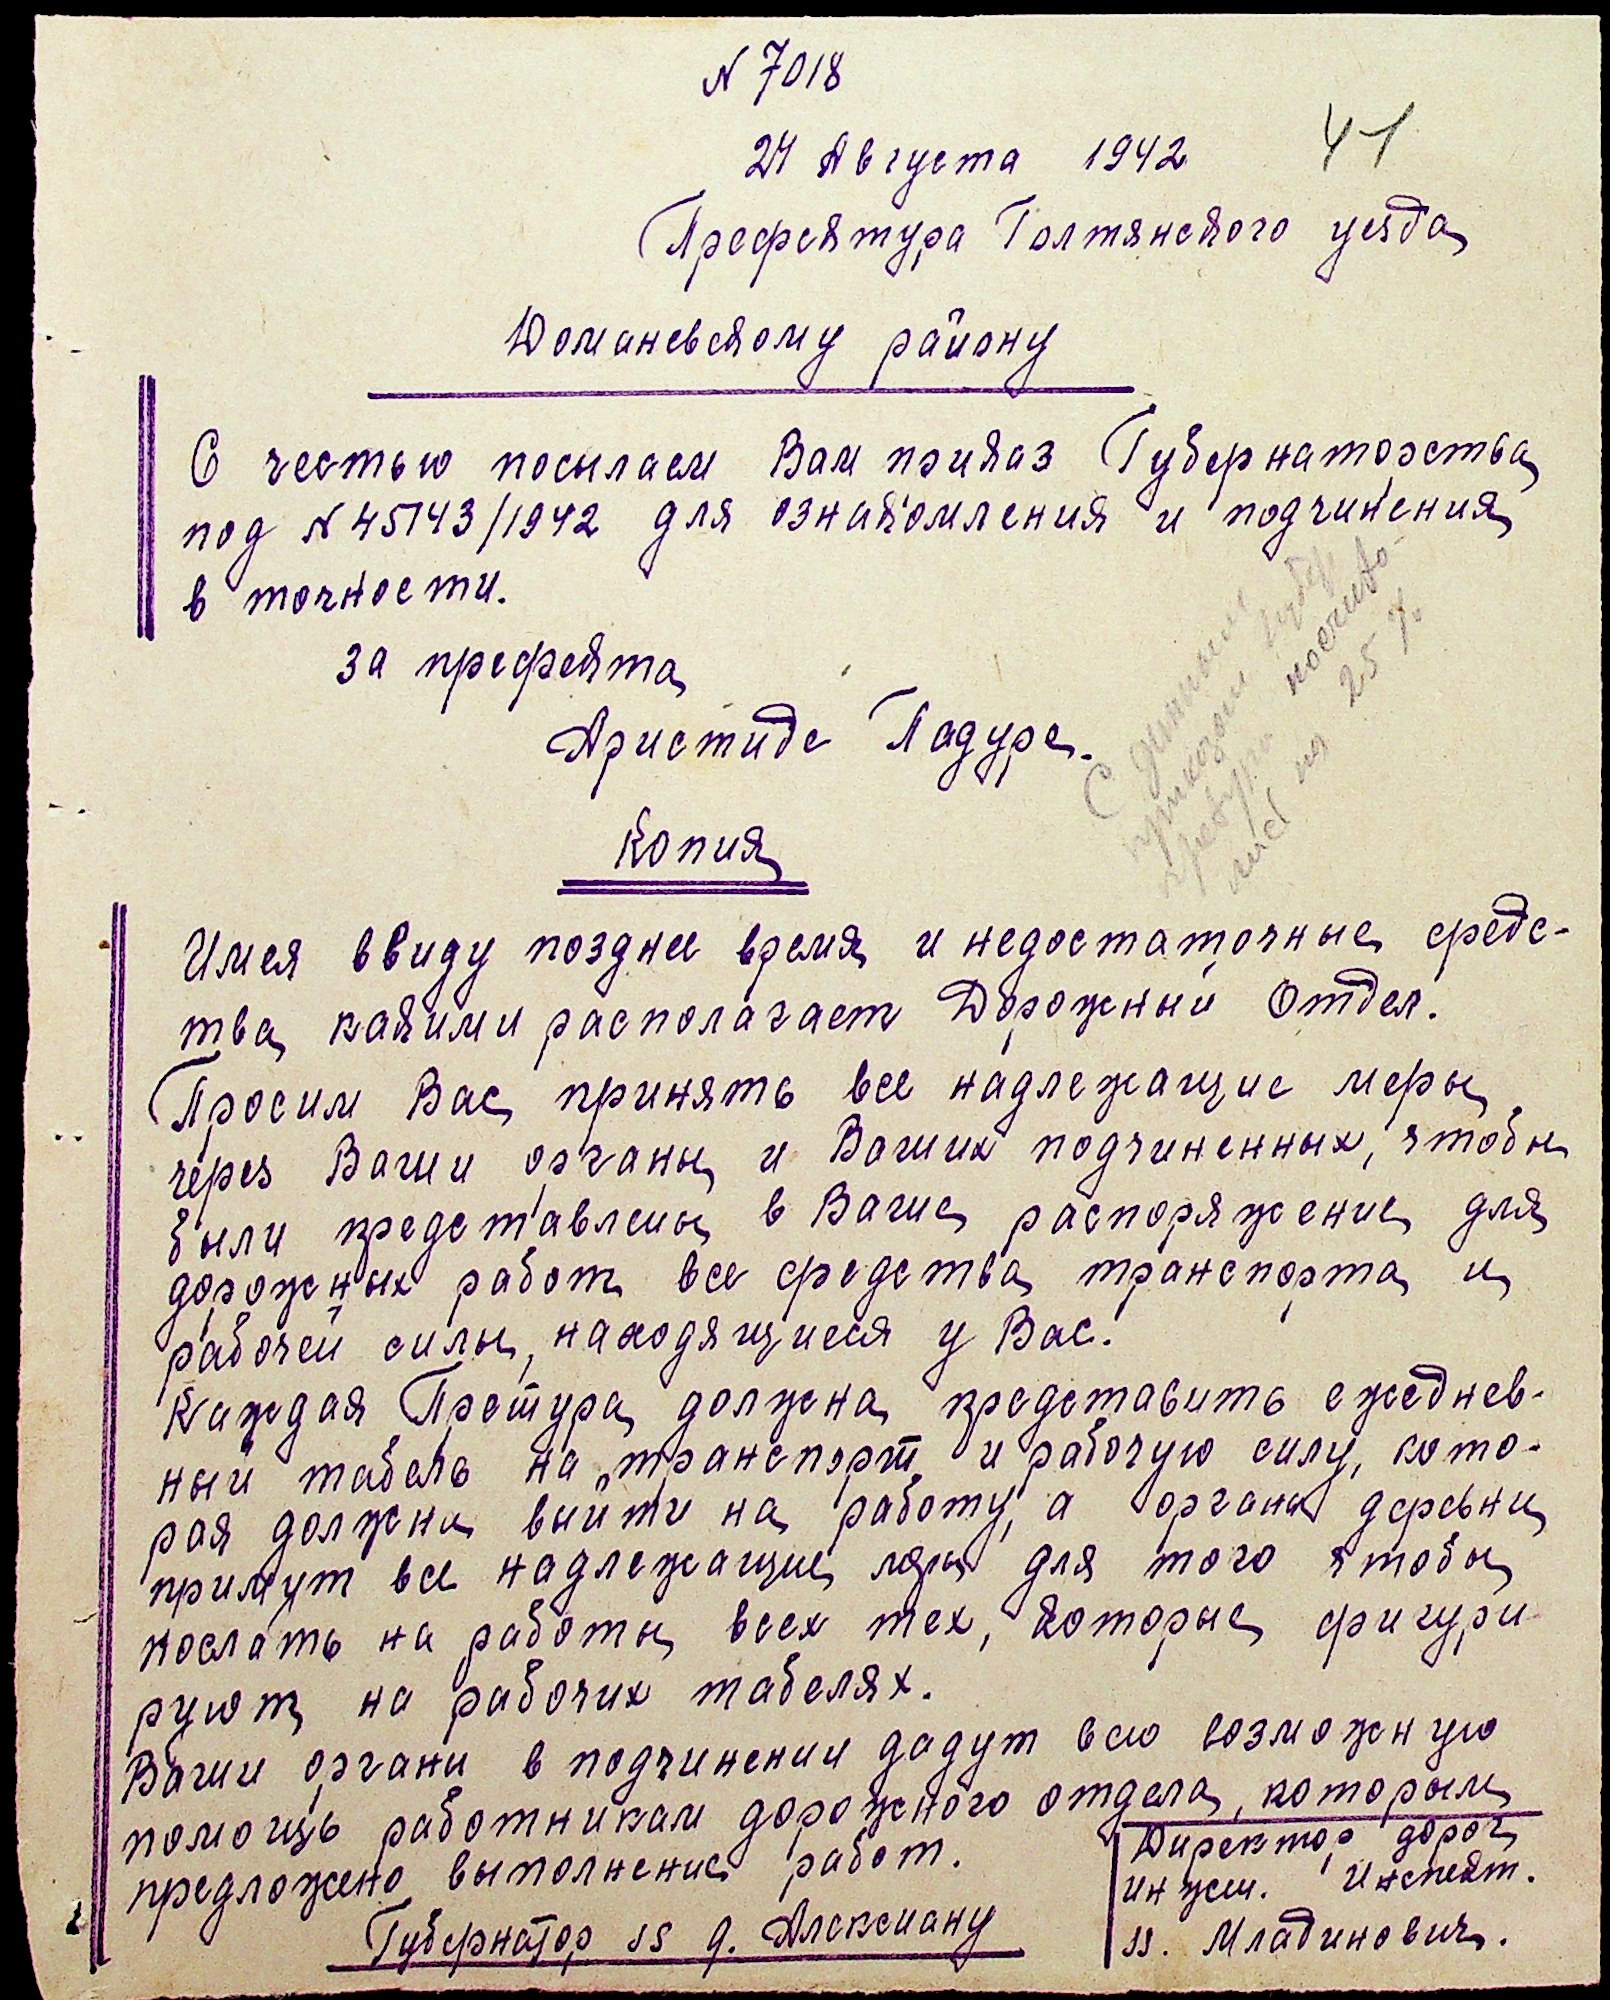 N 7018
24 Августа 1942
41
Префектура Голтянского уезда
Доманевскому району
С честью посылаем Вам приказ Губернаторства
под N 45143/1942 для ознакомления и подчинения
в точности.
за префекта
Аристиде Падуре.
С данным
приказом губер
ли на 25 %
Копия
Имея ввиду позднее время и недостаточные средс-
тва какими располагает Дорожный Отдел.
Просим Вас принять все надлежащие меры
через Ваши органы и Ваших подчиненных, чтобы
были представлены в Ваше распоряжение для
дорожных работ все средства транспорта и
рабочей силы, находящиеся у Вас.
Каждая Претура должна представить ежеднев-
ный табель на транспорт и рабочую силу, кото-
рая должна выйти на работу, а органы деревни
примут все надлежащие меры для того чтобы
послать на работы всех тех, которые фигури
руют на рабочих табелях.
Ваши органы в подчинении дадут всю возможную
помощь работникам дорожного отдела, которым
предложено выполнение работ.
Губернатор ss д. Алексиану
Директор дорог
инжен. Инспект.
ss. Младинович.